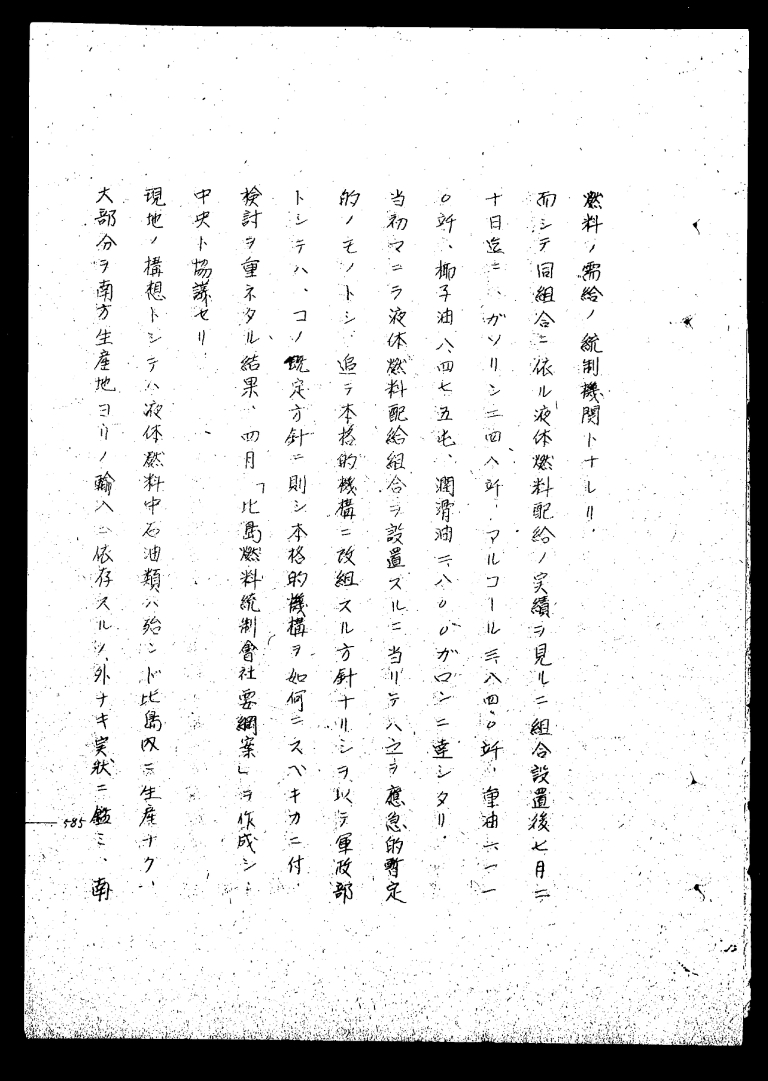 燃料ノ需給ノ統制機関トナレリ、
而シテ同組合ニ依ル液体燃料配給ノ実績ヲ見ルニ組合設置後七月二
十日迄ニ、ガソリン二四八竏、アルコール三、八四〇竏、重油六一一
〇竏、椰子油八、四七五屯、潤滑油二、八〇〇ガロンニ達シタリ、
当初マニラ液体燃料配給組合ヲ設置スルニ当リテハ之ヲ應急的暫定
的ノモノトシ、追テ本格的機構ニ改組スル方針ナリシヲ以テ軍政部
トシテハ、コノ既定方針ニ則シ本格的機構ヲ如何ニスベキカニ付、
検討ヲ重ネタル結果、四月「比島燃料統制會社要綱案」ヲ作成シ、
中央ト協議セリ
現地ノ構想トシテハ液体燃料中石油類ハ殆ンド比島内ニ生産ナク、
大部分ヲ南方生産地ヨリノ輸入ニ依存スルノ外ナキ実状ニ鑑ミ、南
585